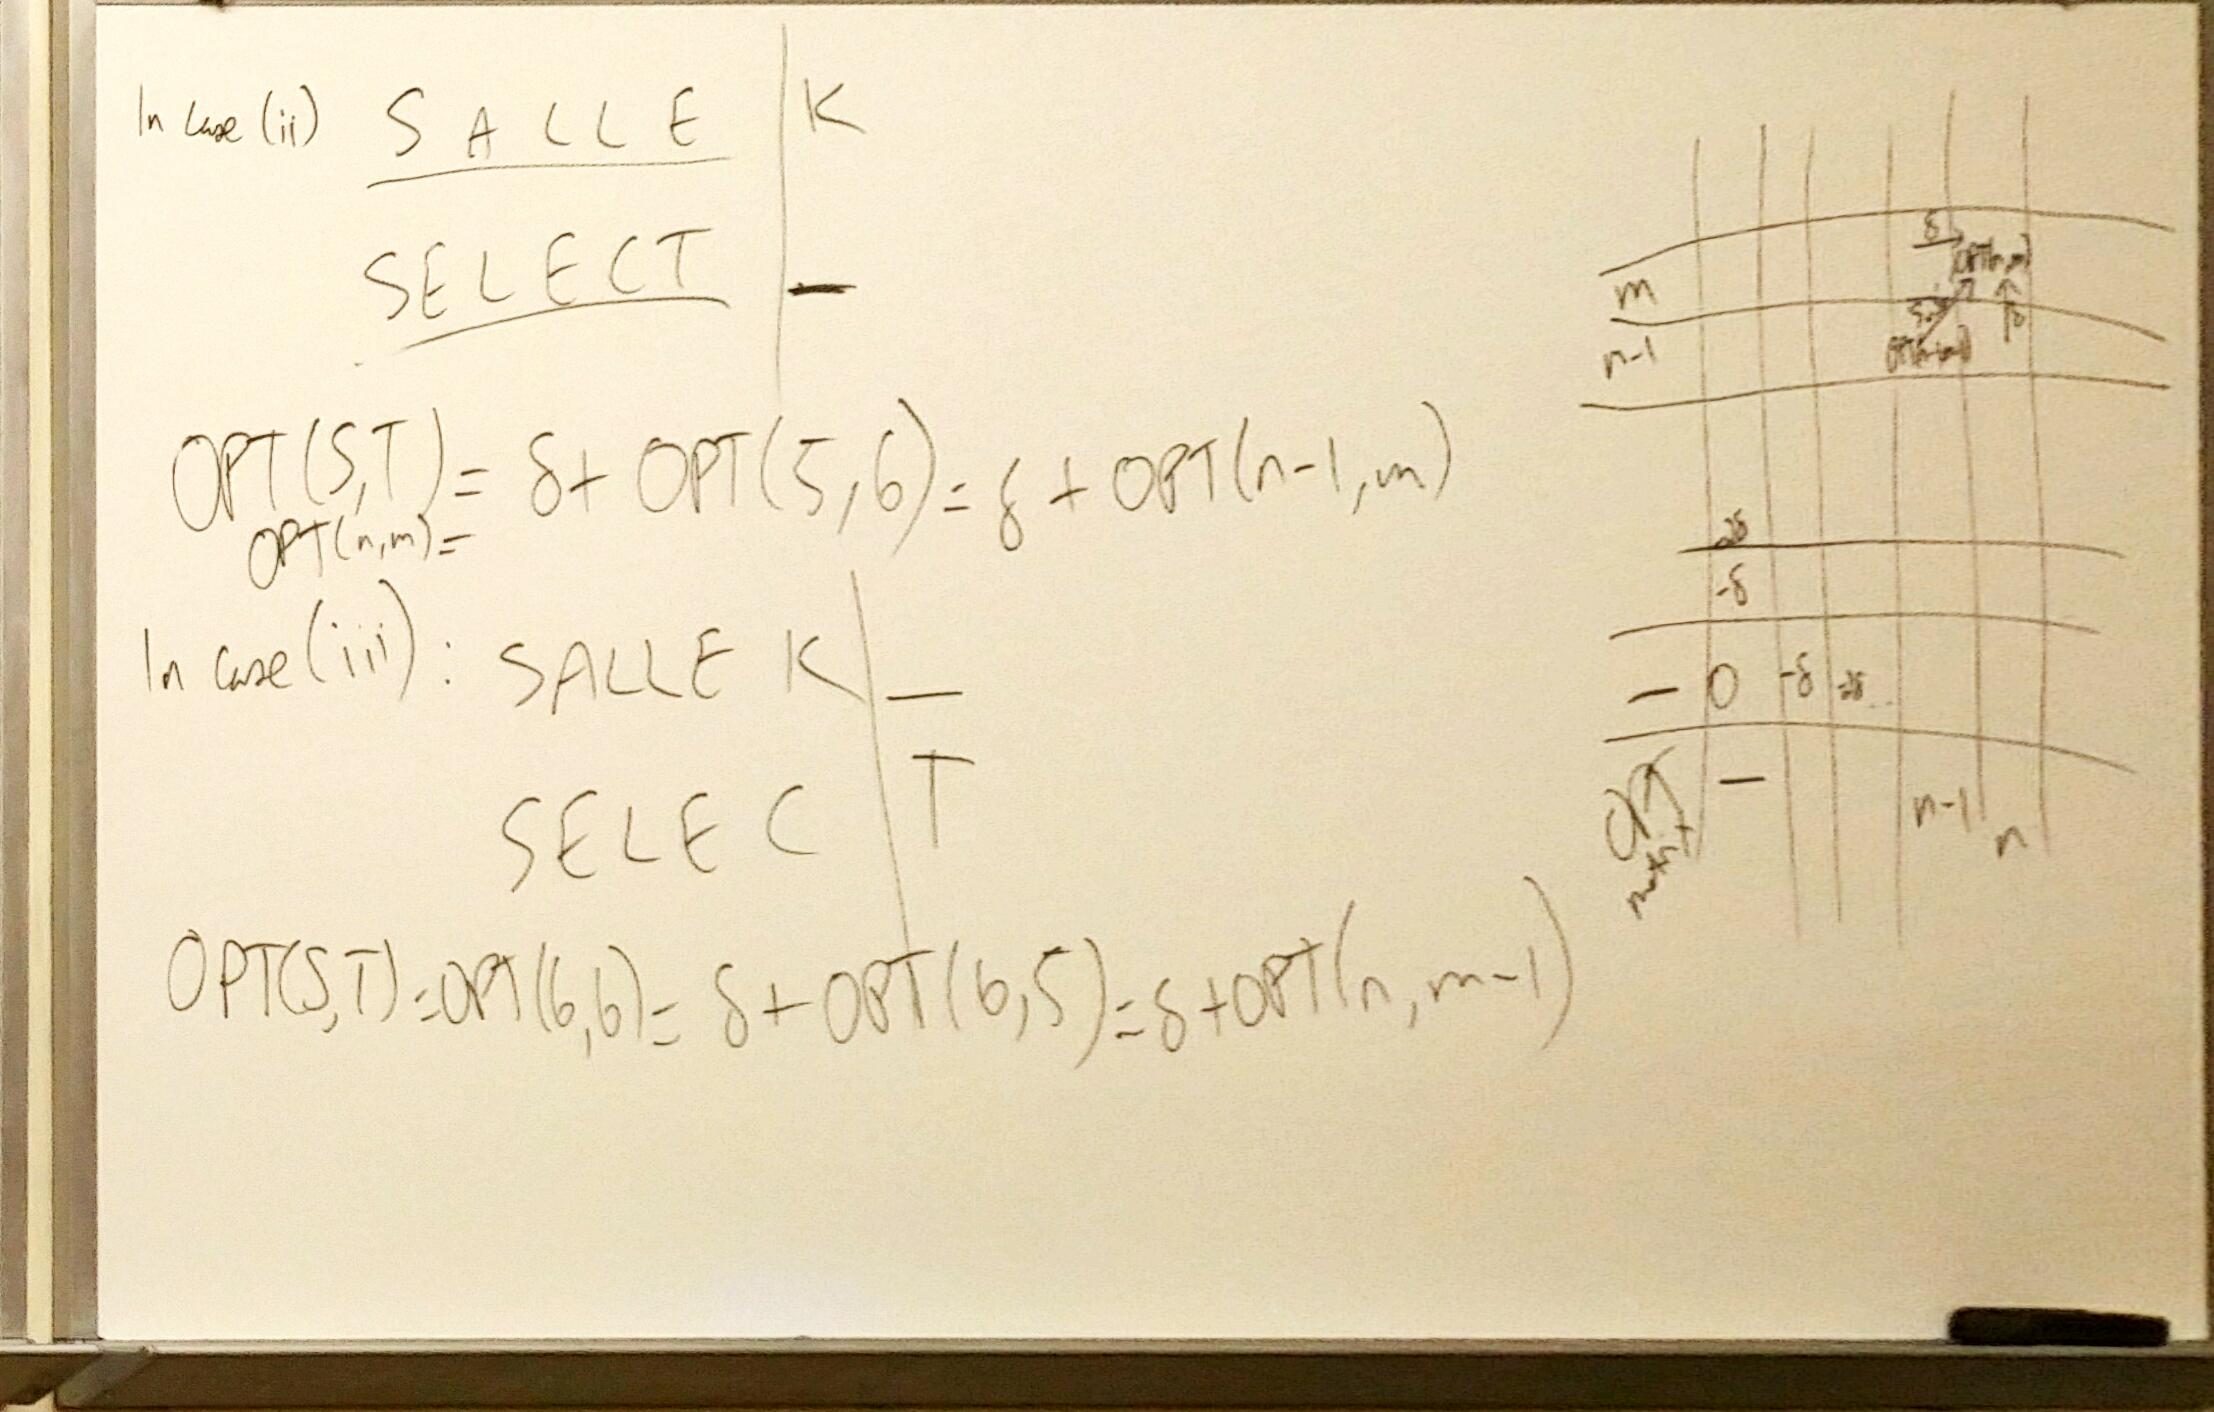 In case (ii) S A L L E | K
SELECT | –
OPT(S,T) = δ + OPT(5,6) = δ + OPT(n-1,m)
OPT(n,m) =
In case (iii): SALLE K | –
SELEC | T
OPT(S,T) = OPT(6,6) = δ + OPT(6,5) = δ + OPT(n,m-1)
δ
OPT(n,m)
m
δ
n-1
-2δ
-δ
– 0 -δ -2δ ..
OPT –
matrix
n-1 n